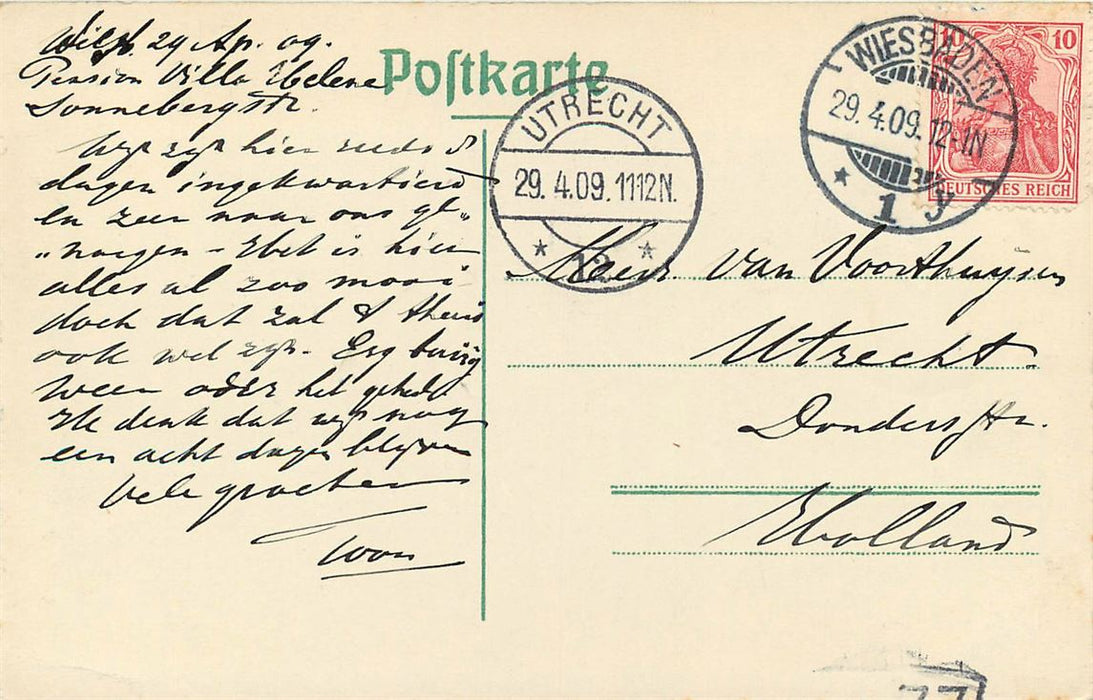 Wiesb. 29 Ap. 09.
Pension Villa Helene
Sonnebergstr.
Wijr zijn hier reeds 8
dagen ingekwartierd
en zeer naar ons ge„
„noegen - Het is hier
alles al zoo mooi
doch dat zal t thuis
ook wel zijn. Erg
weer
Ik denk dat wij nog
een acht dagen blijven
Vele groeten
Toon
Postkarte
UTRECHT
29. 4.09. 1112N.
12
WIESBADEN
29.4.09. 12-1N
1 y
10 10
DEUTSCHES REICH
van Voorthuysen
Utrecht.
Dondersstr.
Holland
77